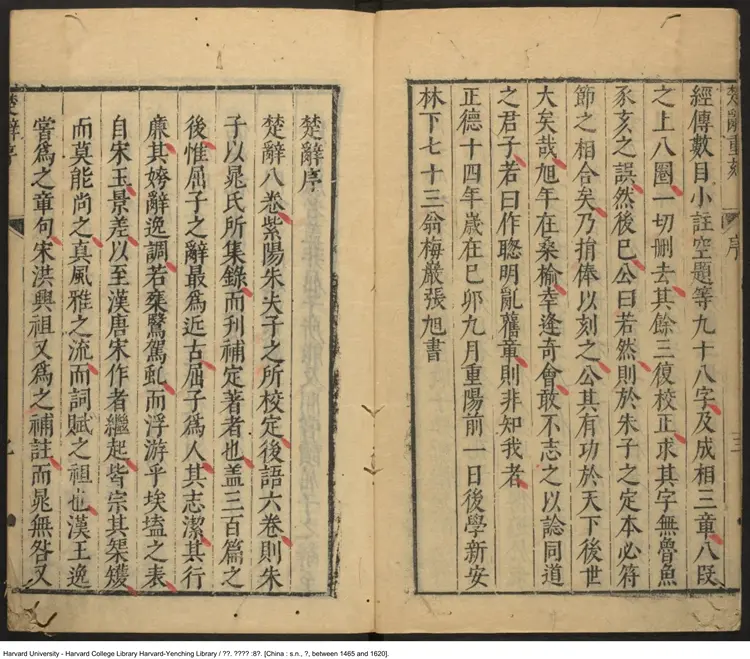 楚辭重刻
序
三
經傳數目小註空題等九十八字及成相三章八段
之上八圈一切刪去其餘三復校正求其字無魯魚
豕亥之誤然後已公曰若然則於朱子之定本必符
節之相合矣乃捐俸以刻之公其有功於天下後世
大矣哉旭年在桑榆幸逢奇會敢不志之以諗同道
之君子若曰作聰明亂舊章則非知我者
正德十四年歲在己卯九月重陽前一日後學新安
林下七十三翁梅巖張旭書
楚辭序
楚辭八卷紫陽朱夫子之所校定後語六卷則朱
子以晁氏所集錄而刋補定著者也盖三百篇之
後惟屈子之辭最爲近古屈子爲人其志潔其行
廉其姱辭逸調若乗鷖駕虬而浮游乎埃壒之表
自宋玉景差以至漢唐宋作者繼起皆宗其榘矱
而莫能尚之真風雅之流而詞賦之祖也漢王逸
嘗爲之章句宋洪興祖又爲之補註而晁無咎又
楚辭序
Harvard University - Harvard College Library Harvard-Yenching Library / ??. ???? :8?. [China : s.n., ?, between 1465 and 1620].